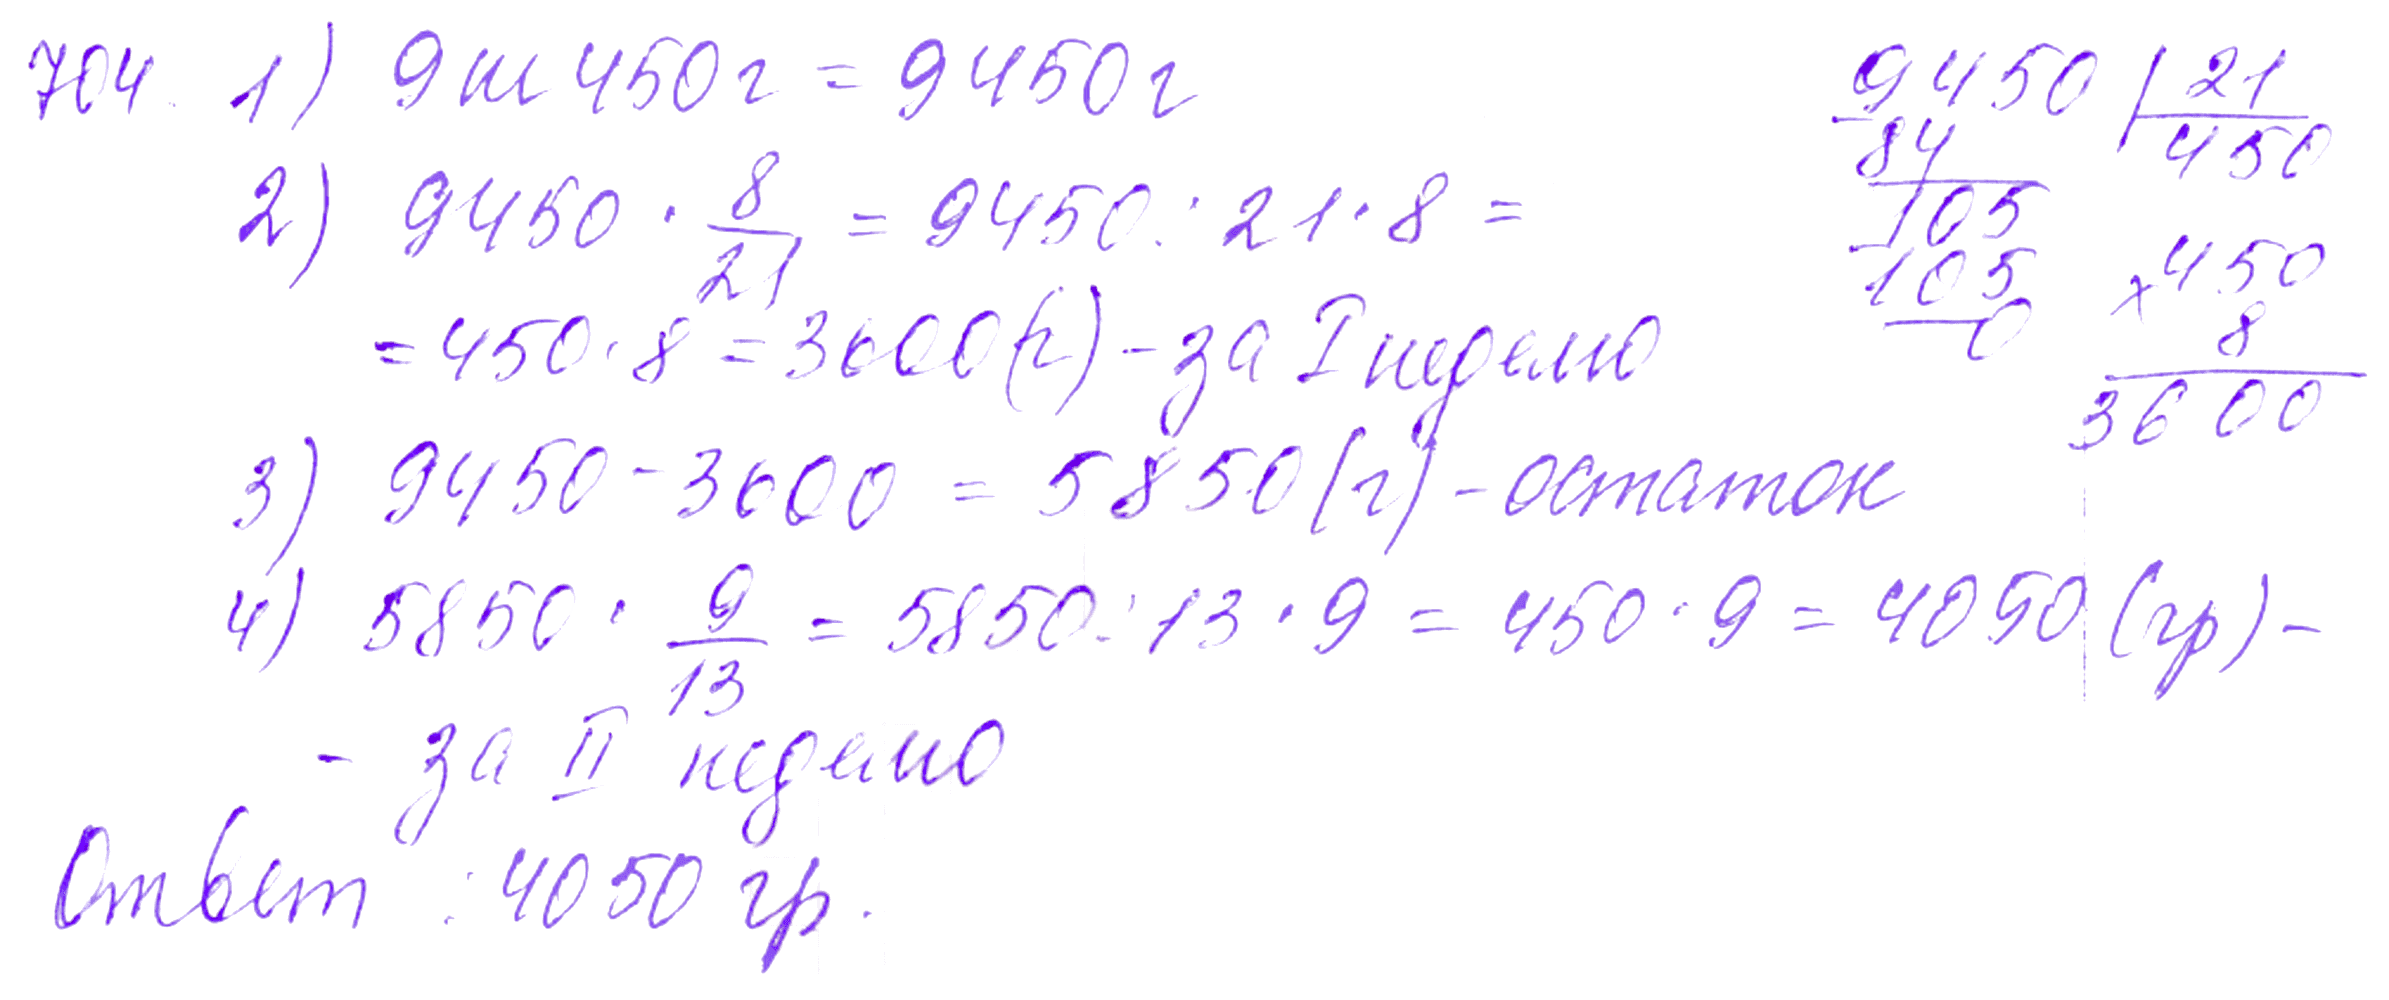 704. 1) 9 кг 450 г = 9450 г
2) 9450 · 8/21 = 9450 : 21 · 8 =
= 450 · 8 = 3600 (г) - за I неделю
3) 9450 - 3600 = 5850 (г) - остаток
4) 5850 · 9/13 = 5850 : 13 · 9 = 450 · 9 = 4050 (гр) -
- за II неделю
Ответ : 4050 гр.
9450 | 21
84 450
105
105
0
× 450
8
3600